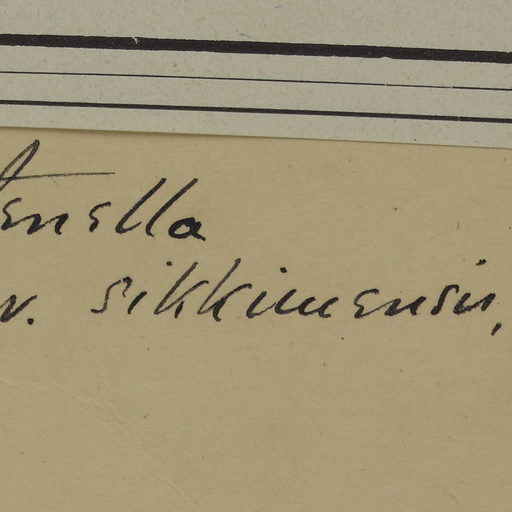 tenella
v. sikkimensis,